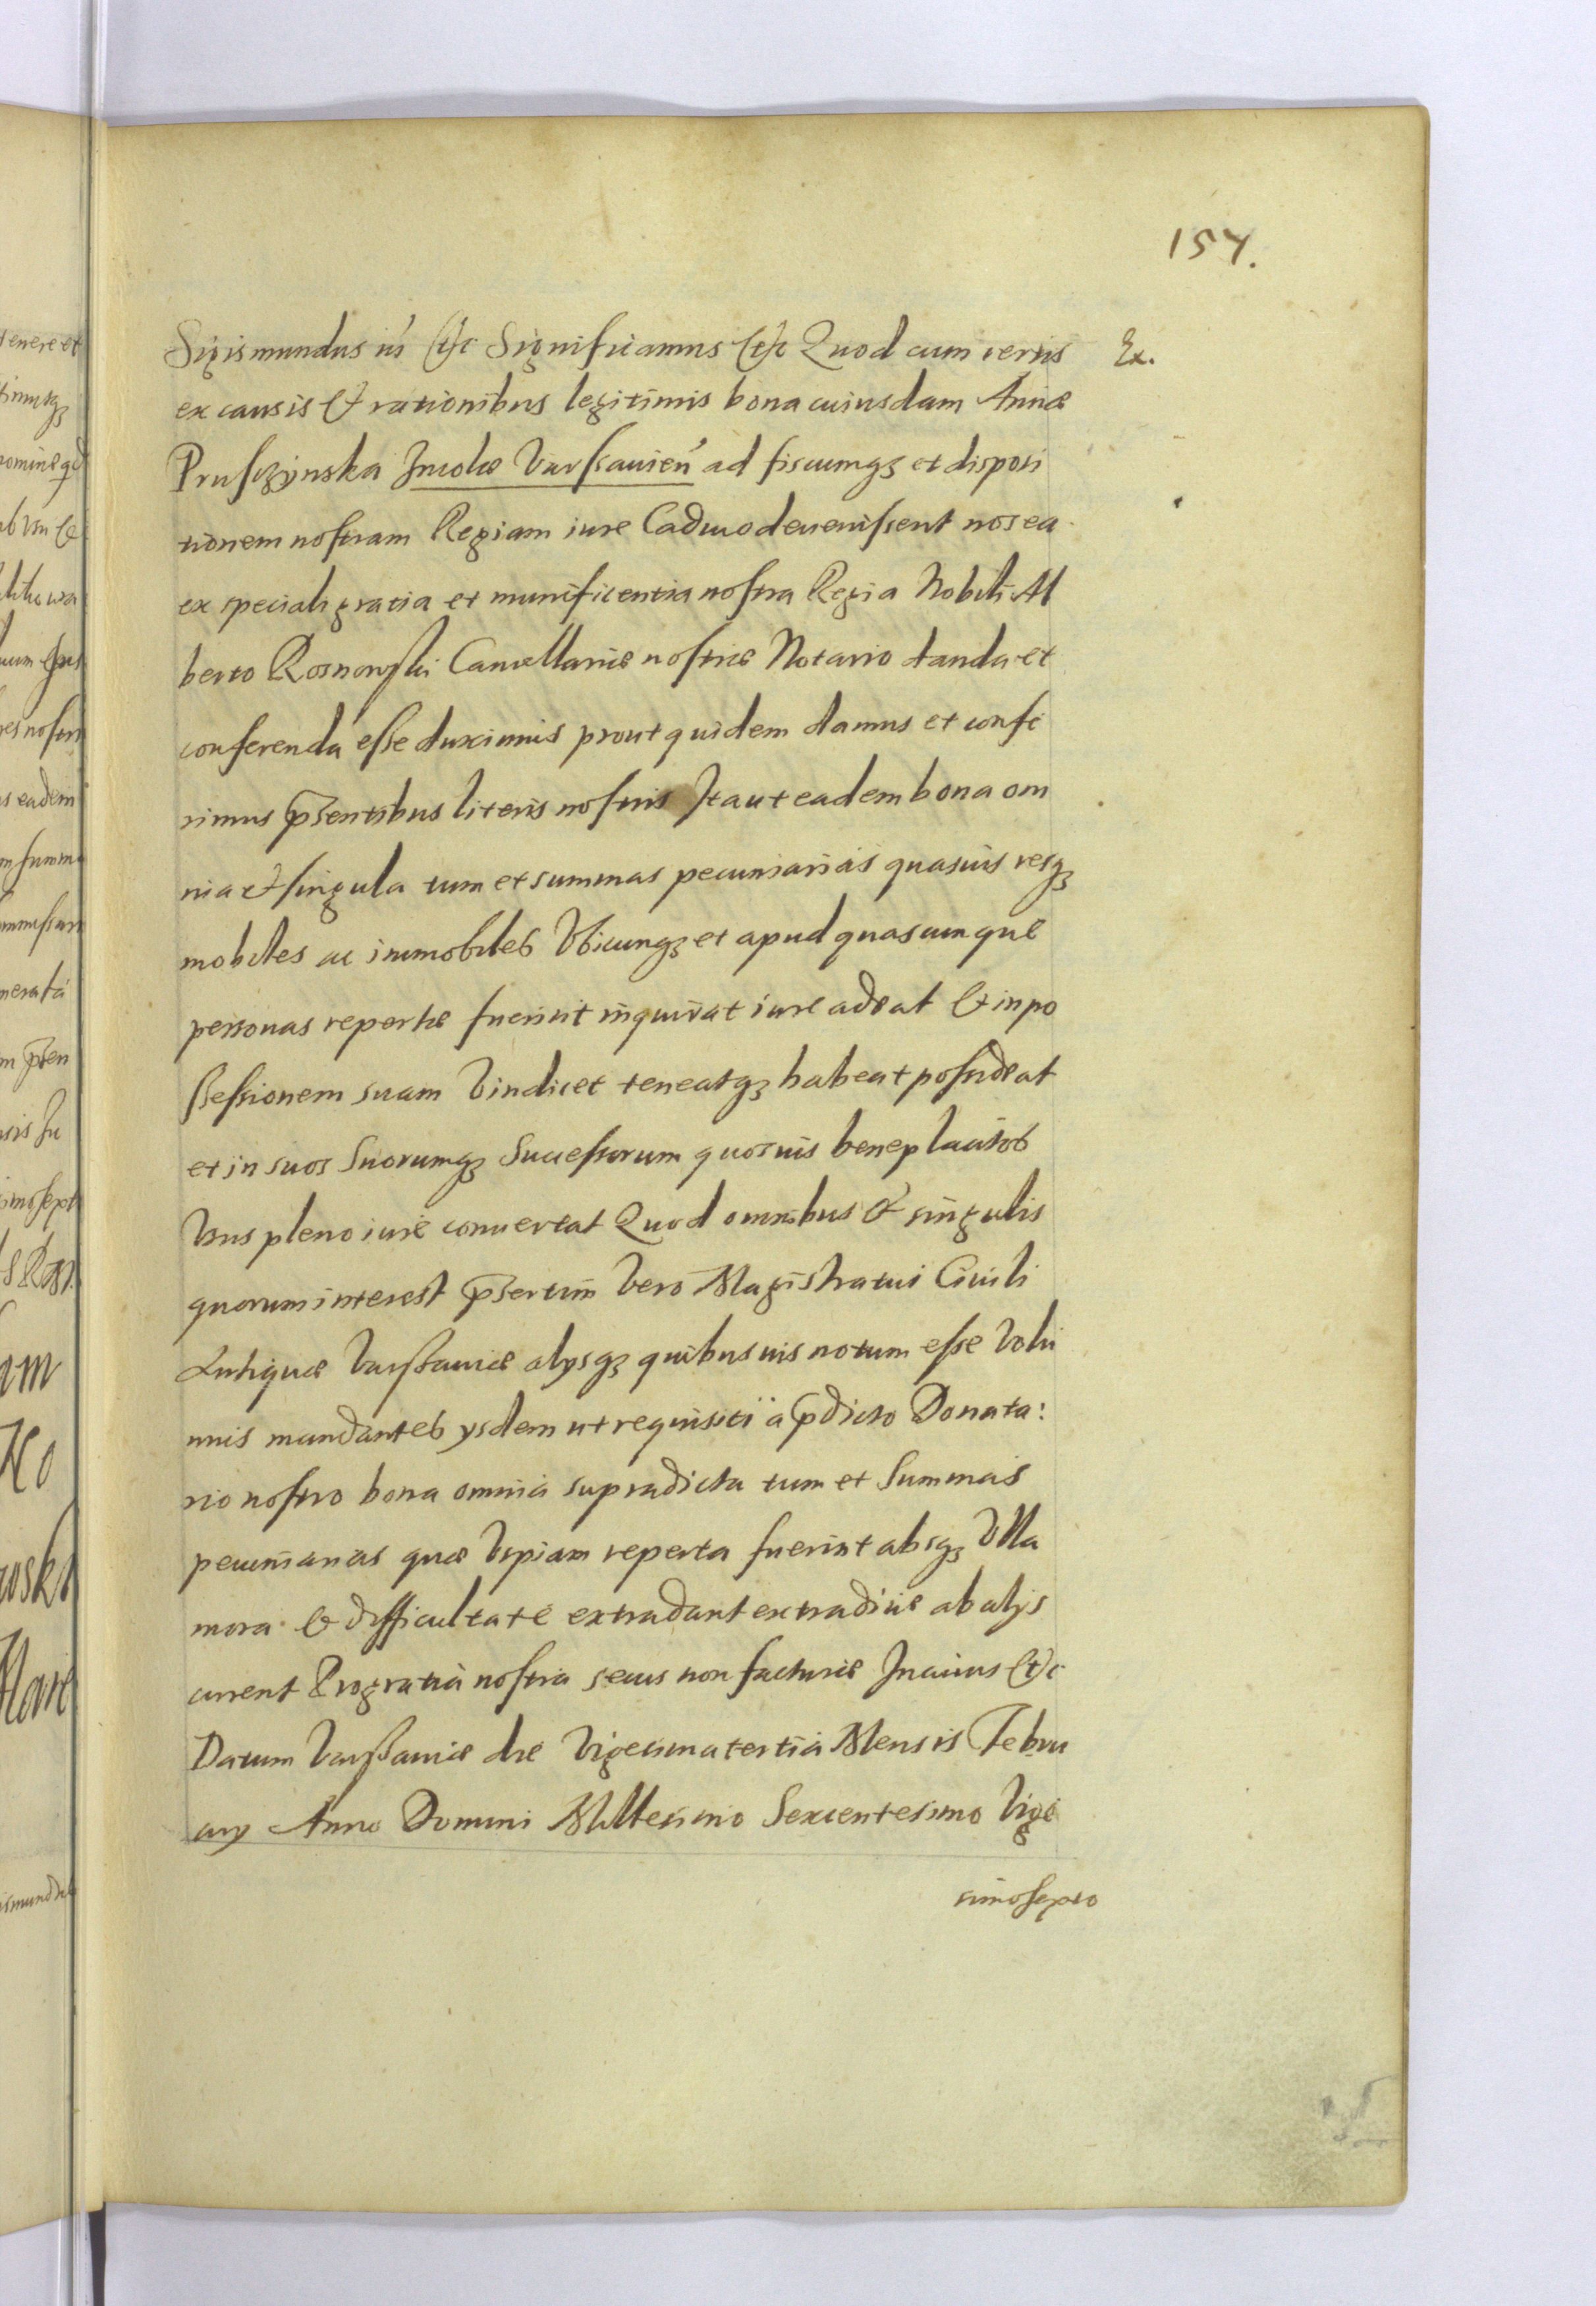 154.
Sigismundus iii etc Significamus etc Quod cum certis
Ex.
ex causis et rationibus legitimis bona cuiusdam Annae
Prusczynska Incolae Varssauien̄ ad fiscumqȝ et disposi
tionem nostram Regiam iure Caduco deuenissent nos ea
ex speciali gratia et munificentia nostra Regia Nobili Al
berto Rosnowski Cancellariae nostrae Notario danda et
conferenda esse duximus prout quidem damus et confe
rimus p̄sentibus literis nostris Ita ut eadem bona om
nia et singula tum et summas pecuniarias quasuis resqȝ
mobiles ac immobiles Vbicunqȝ et apud quascunque
personas repertae fuerint inquirat iure adeat et in po
ssessionem suam Vindicet teneatqȝ habeat possideat
et in suos suorumqȝ Successorum quosuis beneplacitos
Vsus pleno iure conuertat Quod omnibus et singulis
quorum interest p̄sertim Vero Magistratui Ciuili
Antiquae Varssauiae alysqȝ quibusuis notum esse Volu
mus mandantes ysdem ut requisiti a p̄dicto Donata:
rio nostro bona omnia supradicta tum et Summas
pecuniarias quae Vspiam reperta fuerint absqȝ Vlla
mora et difficultate extradant extradiue ab alys
curent Pro gratia nostra secus non facturae In cuius etc
Datum Varssauiae die Vigesima tertia Mensis Febru
ary Anno Domini Millesimo Sexcentesimo Vige
simo septo